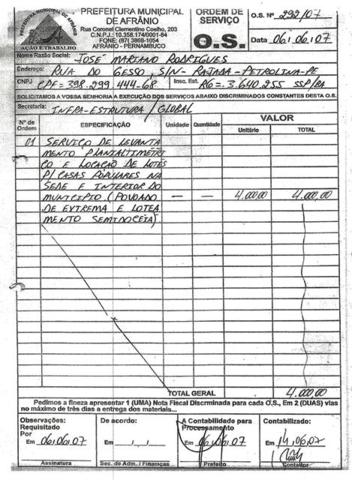 PREFEITURA MUNICIPAL DE AFRÂNIO
Rua Coronel Clementino Coelho, 203
C.N.P.J.: 10.358.174/0001-84
FONE: (87) 3868-1054
AFRÂNIO - PERNAMBUCO
AÇÃO E TRABALHO
ORDEM DE SERVIÇO
O.S.
O.S. Nº 292/07
Data 06/06/07
Nome Razão Social: JOSÉ MARIANO RODRIGUES
Endereço: RUA DO GESSO, S/N - RAJADA - PETROLINA-PE
CNPJ CPF = 398.299.444-68 Insc. Est. RG = 3.640.255 SSP/BA
SOLICITAMOS A VOSSA SENHORIA A EXECUÇÃO DOS SERVIÇOS ABAIXO DISCRIMINADOS CONSTANTES DESTA O.S.
Secretaria: INFRA-ESTRUTURA / GLOBAL
Nº de Ordem ESPECIFICAÇÃO Unidade Quantidade VALOR
Unitário TOTAL
01 SERVIÇO DE LEVANTA
MENTO PLANIALTIMETRI
CO E LOCAÇÃO DE LOTES
P/ CASAS POPULARES NA
SEDE E INTERIOR DO
MUNICIPIO (POVOADO — — 4.000,00 4.000,00
DE EXTREMA E LOTEA
MENTO SEMINOCETA)
TOTAL GERAL 4.000,00
Pedimos a fineza apresentar 1 (UMA) Nota Fiscal Discrminada para cada O.S., Em 2 (DUAS) vias
no máximo de três dias a entrega dos materiais...
Observações:
Requisitado
Por
Em 06/06/07
Assinatura
De acordo:
Em / /
Sec. de Adm. / Finanças
A Contabilidade para
Processamento
Em 06/06/07
Prefeito
Contabilizado:
Em 14/06/07
Contador